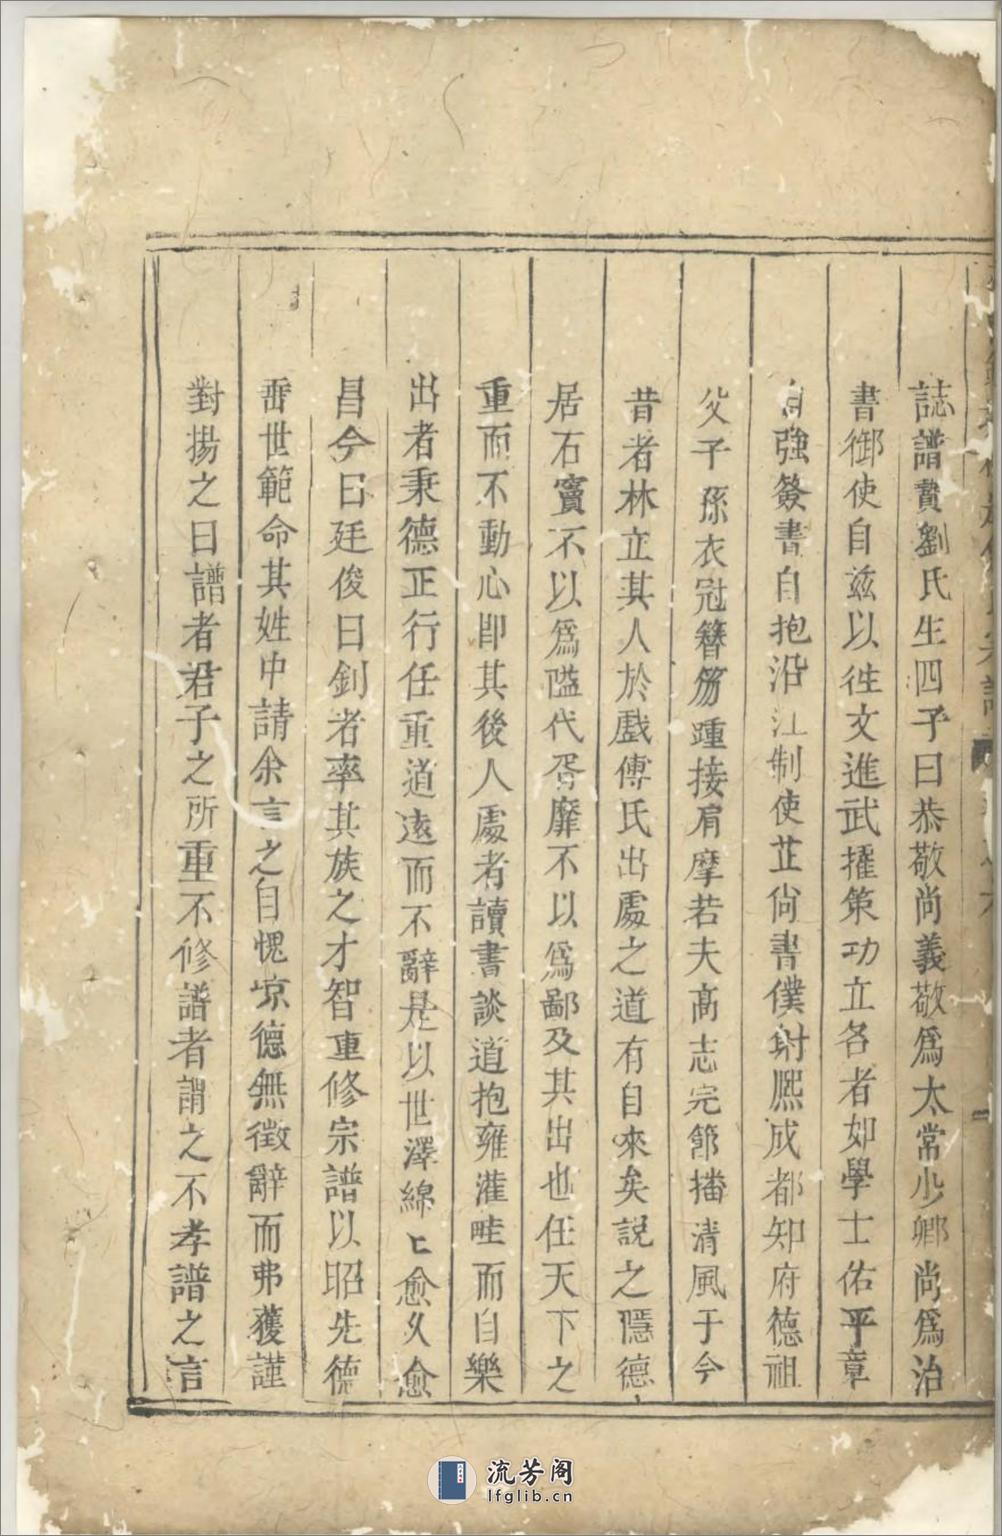 誌譜贄劉氏生四子曰恭敬尚義敬爲太常少卿尚爲治
書御使自兹以徃文進武擢策功立各者如學士佑平章
自強簽書自抱沿江制使芷尙書僕射熈成都知府德祖
父子孫衣冠簪笏踵接肩摩若夫高志完節播清風于今
昔者林立其人於戲傳氏出處之道有自來矣説之隱德
居石竇不以爲隘代胥靡不以爲鄙及其出也任天下之
重而不動心卽其後人處者讀書談道抱雍灌畦而自樂
出者秉德正行任重道逺而不辭是以世澤綿〻愈乆愈
昌今曰廷俊曰釗者率其族之才智重修宗譜以昭先德
垂世範命其姓中請余言之自愧凉德無徵辭而弗獲謹
對揚之曰譜者君子之所重不修譜者謂之不孝譜之言
流芳阁
lfglib.cn